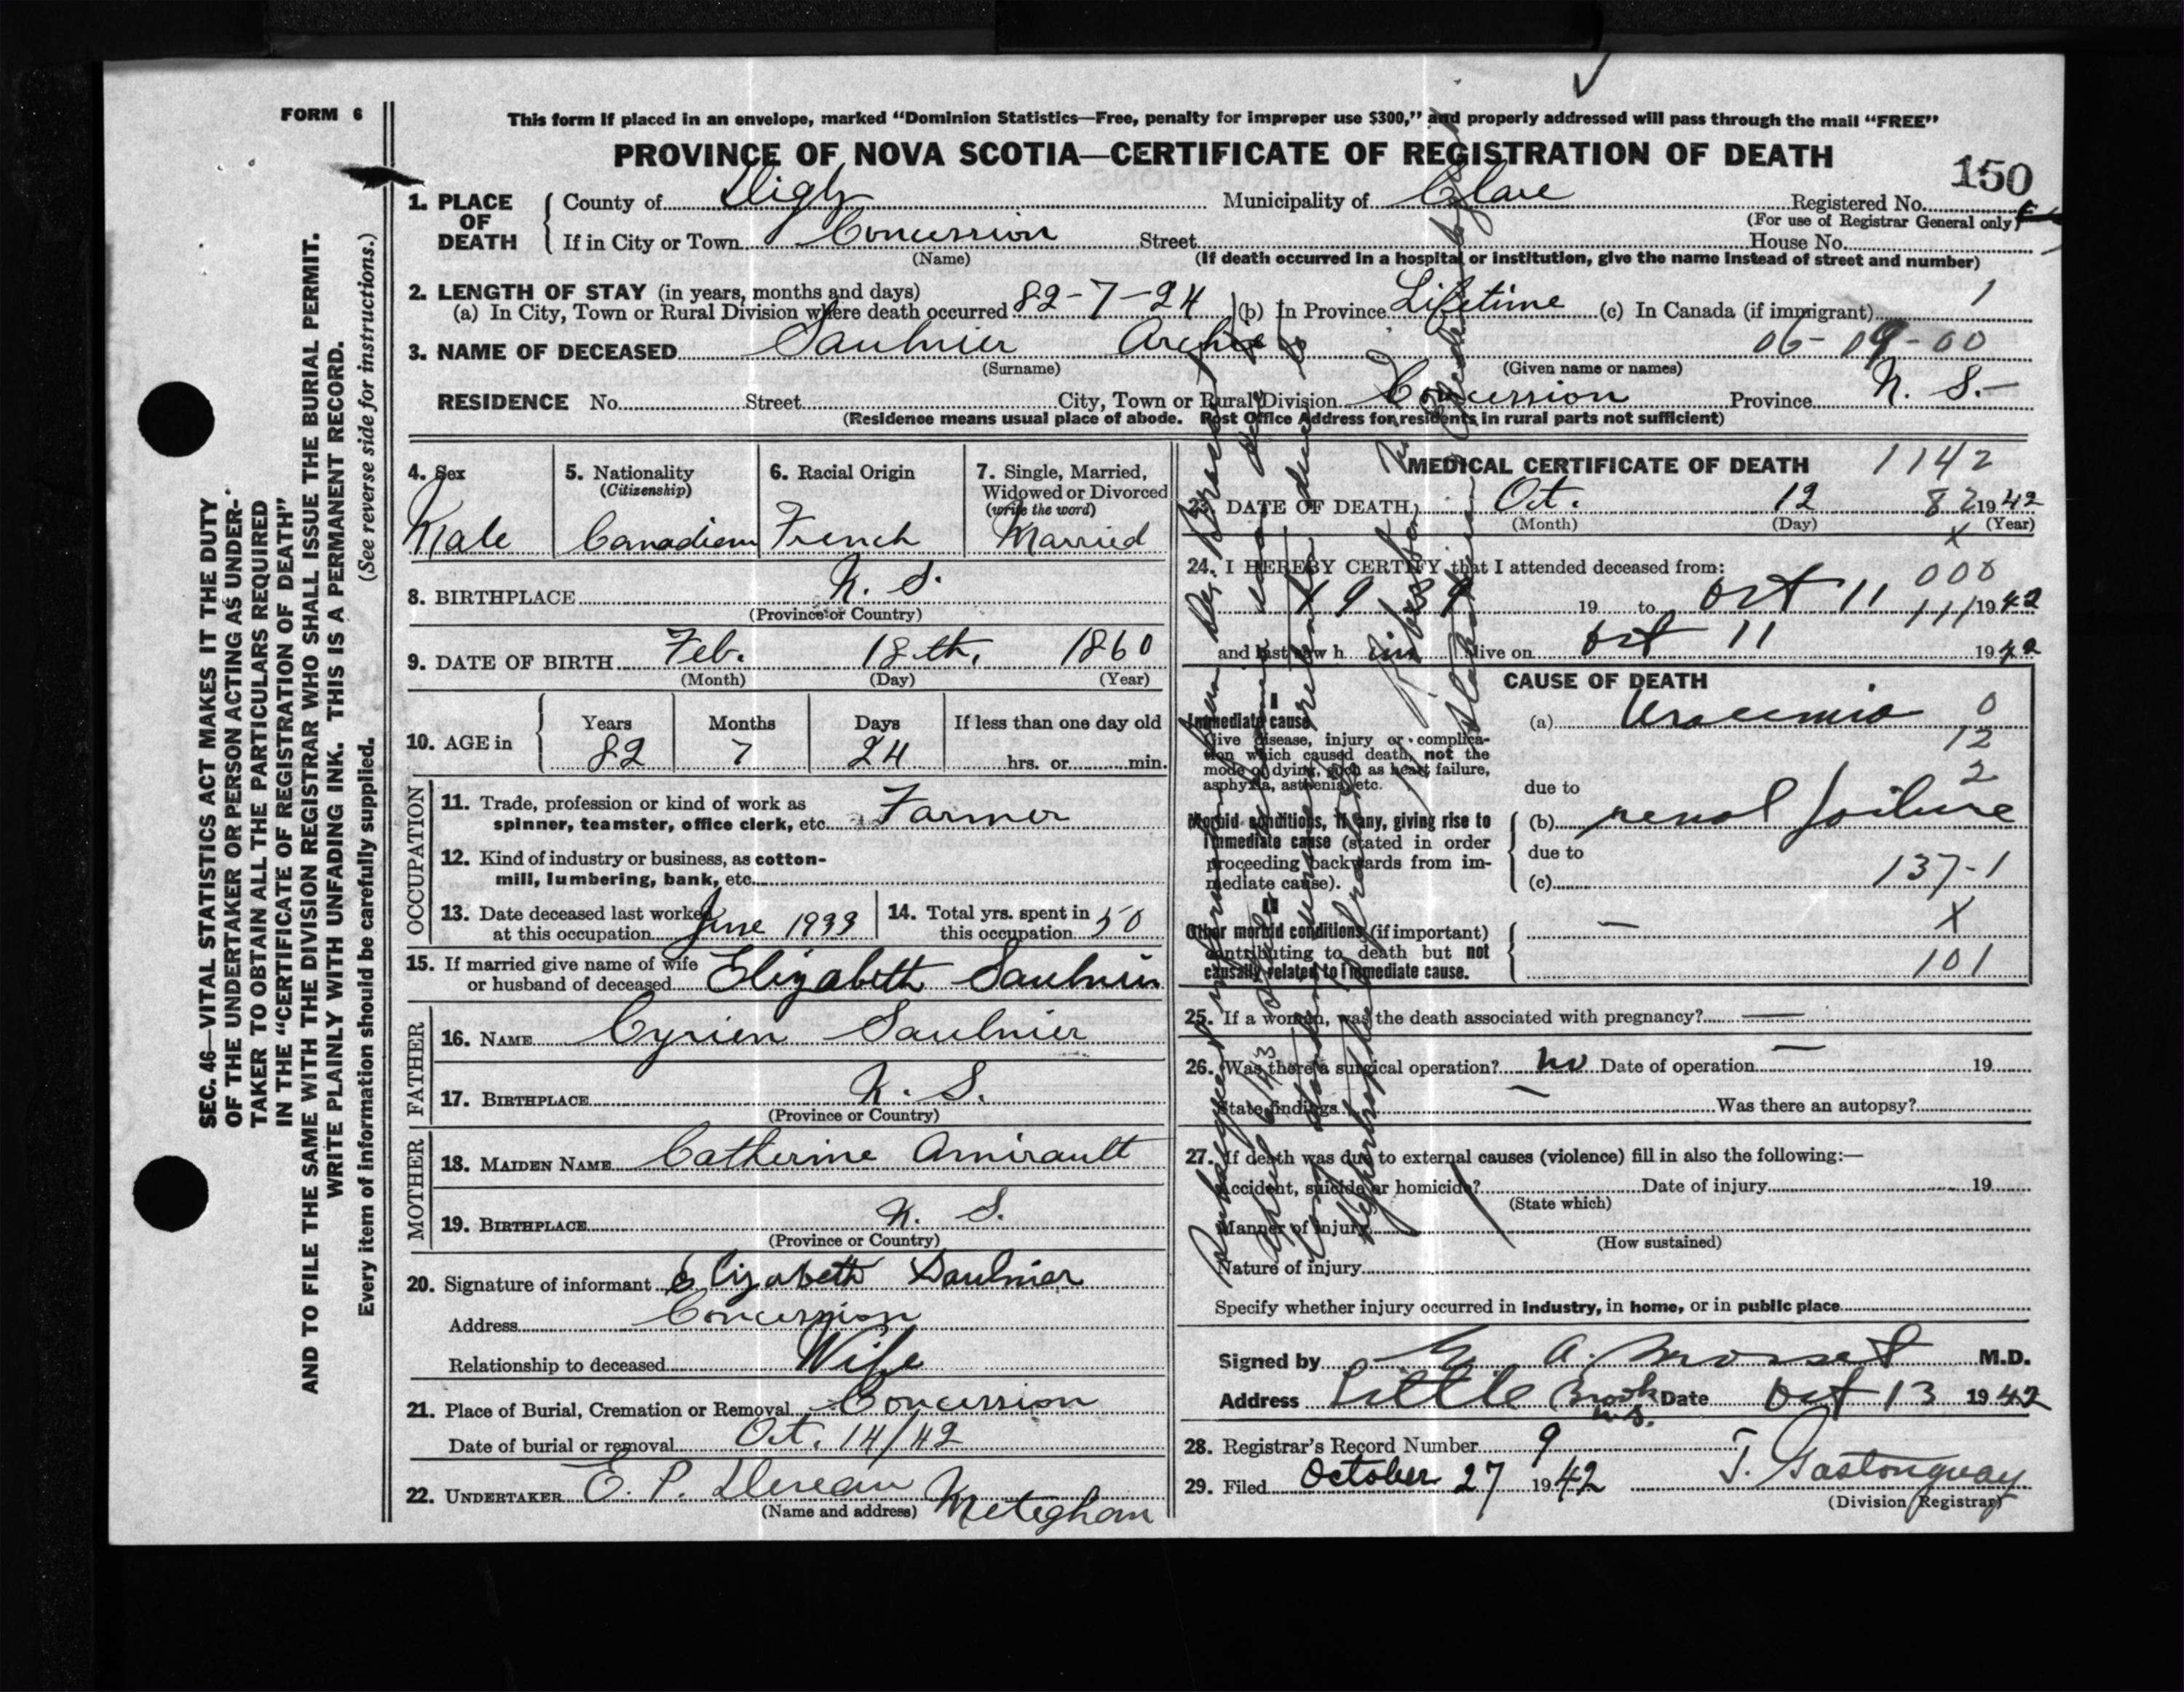 FORM 6
This form if placed in an envelope, marked “Dominion Statistics—Free, penalty for improper use $300,” and properly addressed will pass through the mail “FREE”
PROVINCE OF NOVA SCOTIA—CERTIFICATE OF REGISTRATION OF DEATH
150
1. PLACE OF DEATH
County of Digby Municipality of Clare Registered No.
(For use of Registrar General only)
If in City or Town Concession Street House No.
(Name) (If death occurred in a hospital or institution, give the name instead of street and number)
2. LENGTH OF STAY (in years, months and days)
(a) In City, Town or Rural Division where death occurred 82-7-24 (b) In Province Lifetime (c) In Canada (if immigrant) 1
3. NAME OF DECEASED Saulnier Archie 06-09-00
(Surname) (Given name or names)
RESIDENCE No. Street City, Town or Rural Division Concession Province N. S.
(Residence means usual place of abode. Post Office Address for residents in rural parts not sufficient)
4. Sex Male
5. Nationality (Citizenship) Canadian
6. Racial Origin French
7. Single, Married, Widowed or Divorced (write the word) Married
8. BIRTHPLACE N. S.
(Province or Country)
9. DATE OF BIRTH Feb. 18th, 1860
(Month) (Day) (Year)
10. AGE in Years Months Days If less than one day old
82 7 24 hrs. or min.
OCCUPATION
11. Trade, profession or kind of work as
spinner, teamster, office clerk, etc. Farmer
12. Kind of industry or business, as cotton-
mill, lumbering, bank, etc.
13. Date deceased last worked
at this occupation June 1933
14. Total yrs. spent in
this occupation 50
15. If married give name of wife
or husband of deceased Elizabeth Saulnier
FATHER
16. NAME Cyrien Saulnier
17. BIRTHPLACE N. S.
(Province or Country)
MOTHER
18. MAIDEN NAME Catherine Amirault
19. BIRTHPLACE N. S.
(Province or Country)
20. Signature of informant Elizabeth Saulnier
Address Concession
Relationship to deceased Wife
21. Place of Burial, Cremation or Removal Concession
Date of burial or removal Oct. 14/42
22. UNDERTAKER E. P. Deveau Meteghan
(Name and address)
MEDICAL CERTIFICATE OF DEATH 1142
23. DATE OF DEATH Oct. 12 82 1942
(Month) (Day) (Year)
x
24. I HEREBY CERTIFY that I attended deceased from:
000
1939 19 to Oct 11 111 1942
and last saw h im alive on Oct 11 1942
CAUSE OF DEATH
I
Immediate cause
Give disease, injury or complica-
tion which caused death, not the
mode of dying, such as heart failure,
asphyxia, asthenia, etc.
(a) Uraemia 0
12
2
due to
Morbid conditions, if any, giving rise to
immediate cause (stated in order
proceeding backwards from im-
mediate cause).
(b) renal failure
due to
(c) 137-1
II
Other morbid conditions (if important)
contributing to death but not
causally related to immediate cause.
— X
101
25. If a woman, was the death associated with pregnancy? —
26. Was there a surgical operation? no Date of operation — 19
State findings — Was there an autopsy?
27. If death was due to external causes (violence) fill in also the following:—
Accident, suicide or homicide? Date of injury 19
(State which)
Manner of injury
(How sustained)
Nature of injury
Specify whether injury occurred in industry, in home, or in public place
Signed by A. M.D.
Address Little Brook N.S. Date Oct 13 1942
28. Registrar's Record Number 9
29. Filed October 27 1942 J. Gastonguay
(Division Registrar)
SEC. 46—VITAL STATISTICS ACT MAKES IT THE DUTY
OF THE UNDERTAKER OR PERSON ACTING AS UNDER-
TAKER TO OBTAIN ALL THE PARTICULARS REQUIRED
IN THE “CERTIFICATE OF REGISTRATION OF DEATH”
AND TO FILE THE SAME WITH THE DIVISION REGISTRAR WHO SHALL ISSUE THE BURIAL PERMIT.
WRITE PLAINLY WITH UNFADING INK. THIS IS A PERMANENT RECORD.
Every item of information should be carefully supplied. (See reverse side for instructions.)